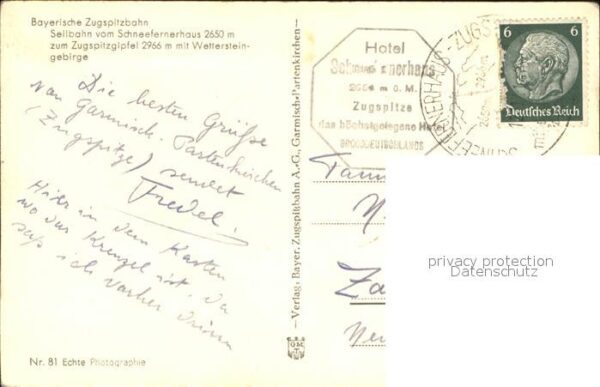 Bayerische Zugspitzbahn
Seilbahn vom Schneefernerhaus 2650 m
zum Zugspitzgipfel 2966 m mit Wetterstein-
gebirge
Die besten Grüße
von Garmisch Partenkirchen
(Zugspitze) sendet
Fredel.
Hier in dem Kasten
wo das Kreuzel ist, da
saß ich vorher drinn
Nr. 81 Echte Photographie
– Verlag: Bayer. Zugspitzbahn A.-G., Garmisch-Partenkirchen –
Hotel
Schneefernerhaus
2650 m ü. M.
Zugspitze
das höchstgelegene Hotel
GROSSDEUTSCHLANDS
6 6
Deutsches Reich
privacy protection
Datenschutz